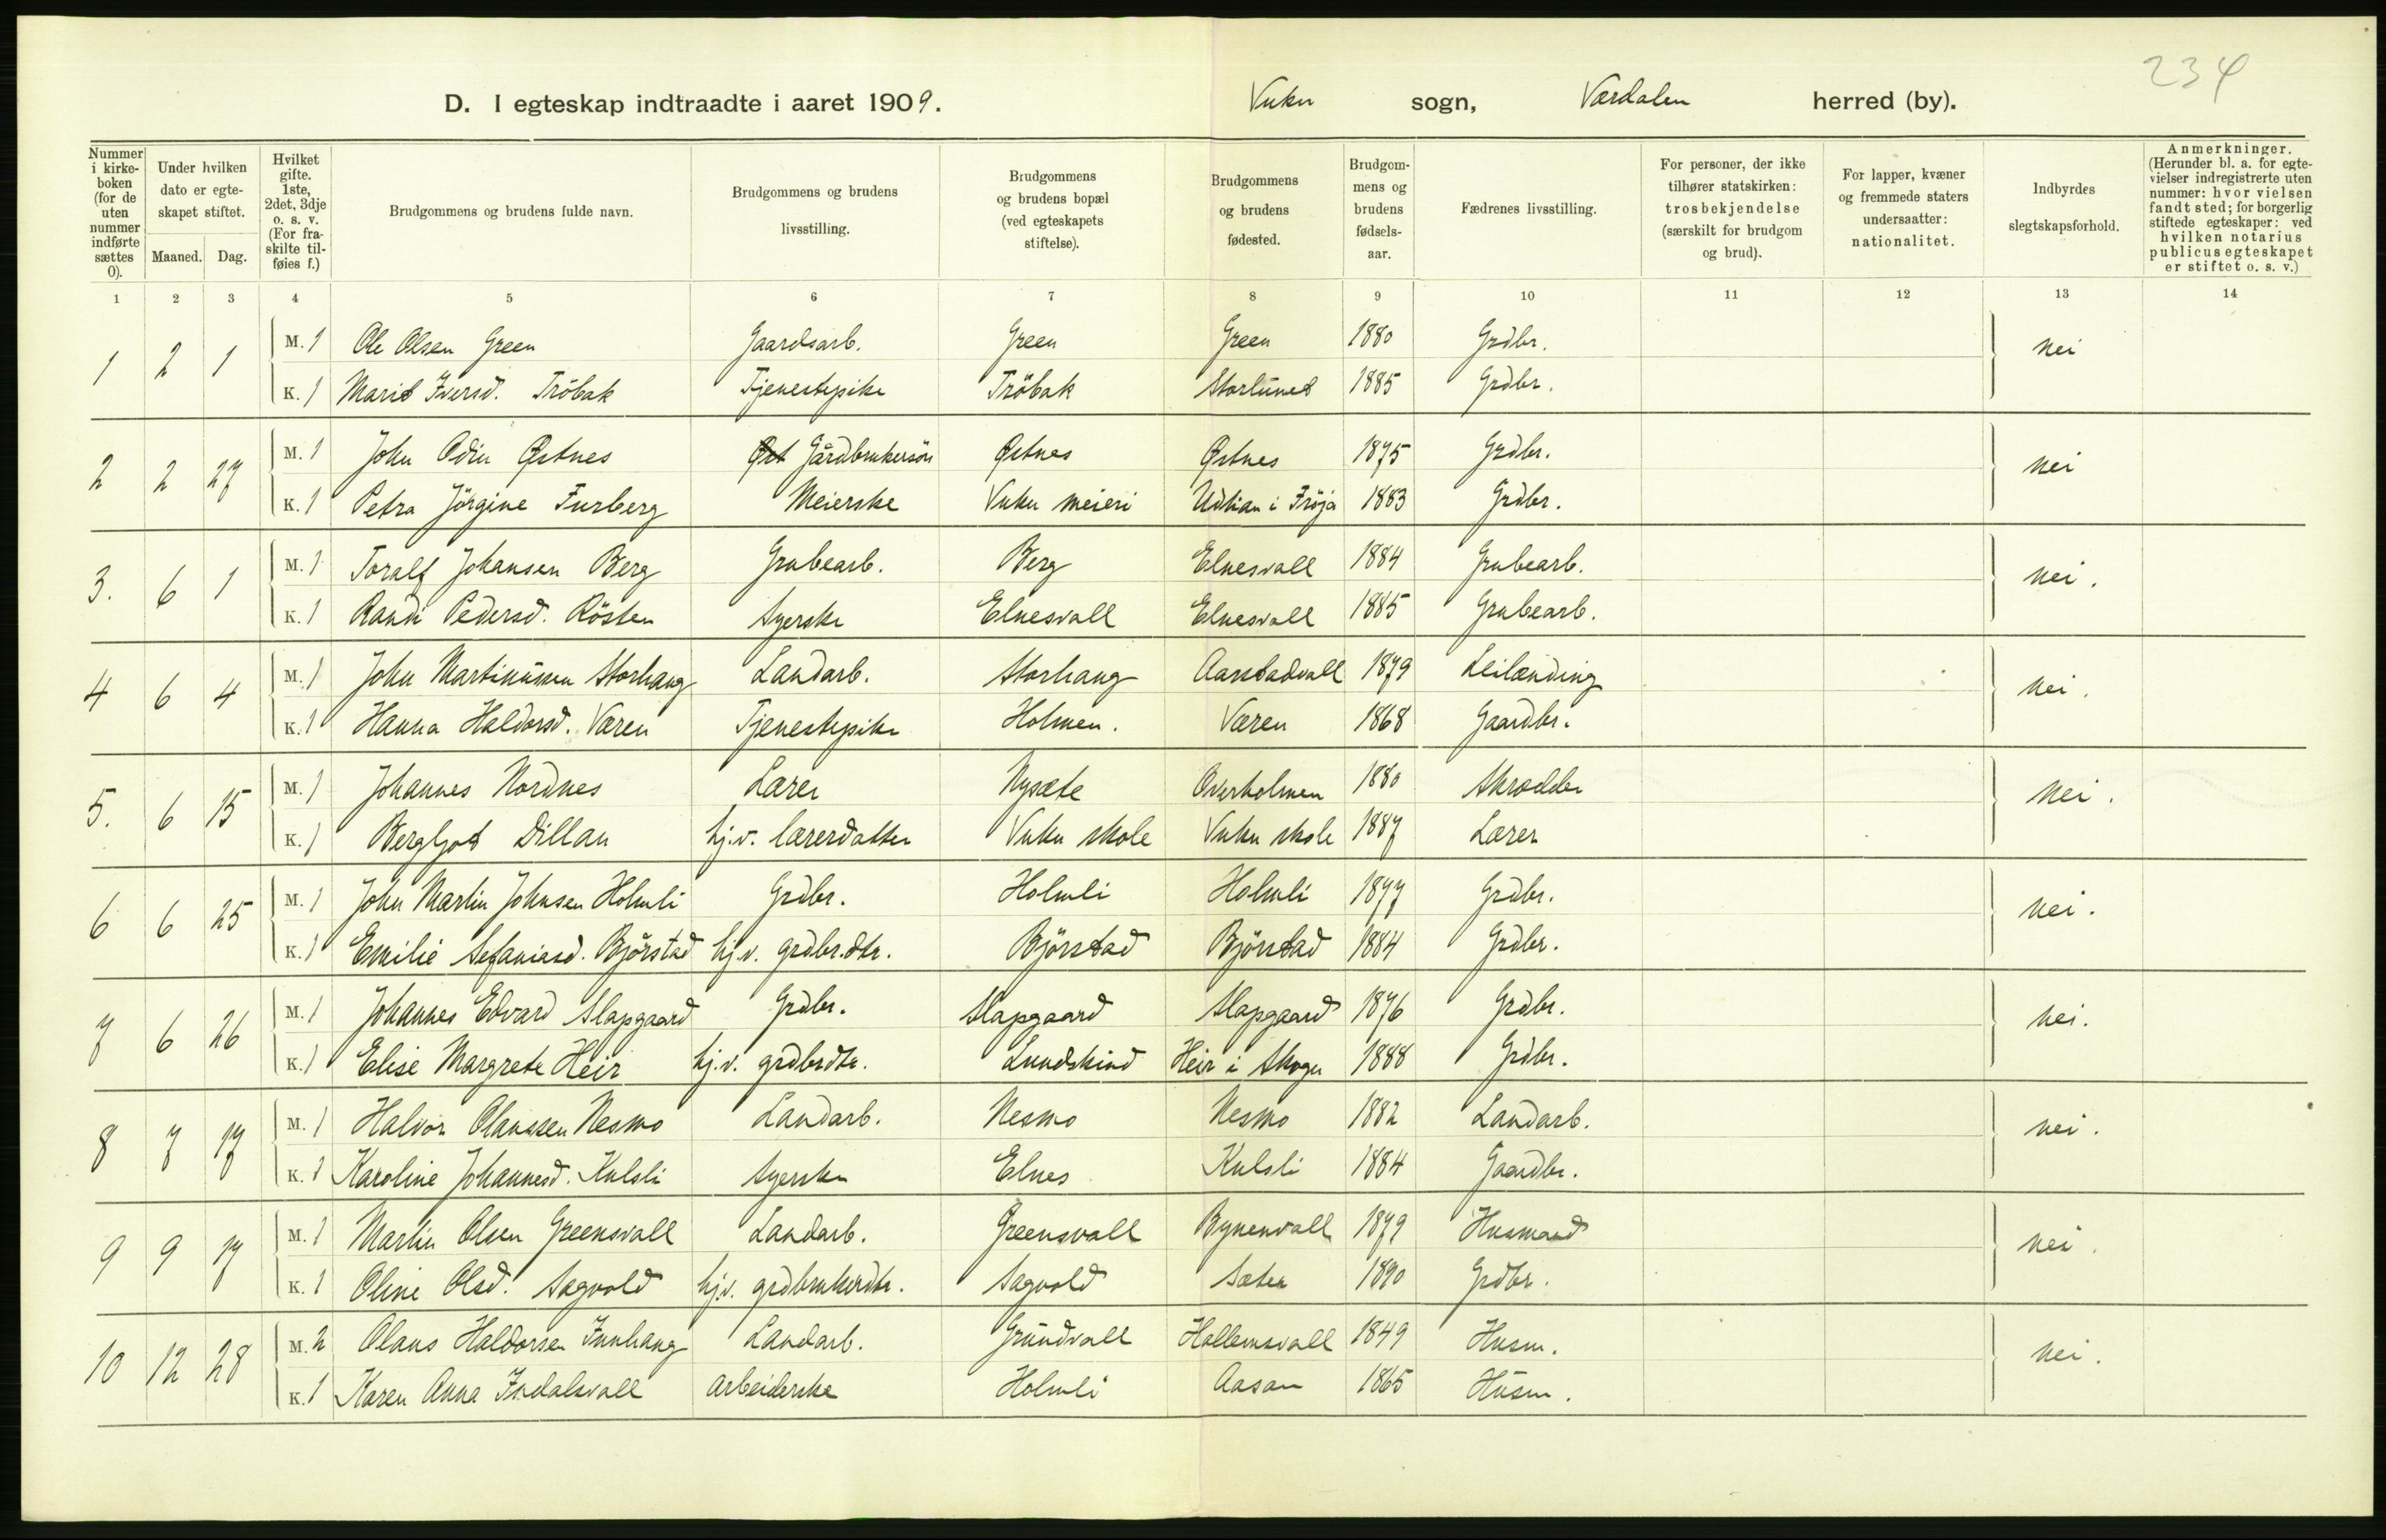 234
D. I egteskap indtraadte i aaret 1909. Vuku sogn, Værdalen herred (by).
Nummer i kirkeboken (for de uten nummer indførte sættes 0). | Under hvilken dato er egteskapet stiftet. Maaned. Dag. | Hvilket gifte. 1ste, 2det, 3dje o. s. v. (For fraskilte tilføies f.) | Brudgommens og brudens fulde navn. | Brudgommens og brudens livsstilling. | Brudgommens og brudens bopæl (ved egteskapets stiftelse). | Brudgommens og brudens fødested. | Brudgommens og brudens fødselsaar. | Fædrenes livsstilling. | For personer, der ikke tilhører statskirken: trosbekjendelse (særskilt for brudgom og brud). | For lapper, kvæner og fremmede staters undersaatter: nationalitet. | Indbyrdes slegtskapsforhold. | Anmerkninger. (Herunder bl. a. for egtevielser indregistrerte uten nummer: hvor vielsen fandt sted; for borgerlig stiftede egteskaper: ved hvilken notarius publicus egteskapet er stiftet o. s. v.)
1 2 3 4 5 6 7 8 9 10 11 12 13 14
1 2 1 M. 1 Ole Olsen Green Gaardsarb. Green Green 1880 Grdbr. nei
K. 1 Marit Iversd. Tröbak Tjenestepike Tröbak Storlunet 1885 Grdbr.
2 2 27 M. 1 John Odin Østnes Øst Gårdbrukersön Østnes Østnes 1875 Grdbr. nei
K. 1 Petra Jörgine Furberg Meierske Vuku meieri Udlian i Fröja 1883 Grdbr.
3. 6 1 M. 1 Toralf Johansen Berg Grubearb. Berg Elnesvall 1884 Grubearb. nei.
K. 1 Randi Pedersd. Rösten Syerske Elnesvall Elnesvall 1885 Grubearb.
4 6 4 M. 1 John Martinussen Storhaug Landarb. Storhaug Aarstadvall 1879 Leilænding nei.
K. 1 Hanna Haldorsd. Væren Tjenestepike Holmen. Væren 1868 Gaardbr.
5. 6 15 M. 1 Johannes Nordnes Lærer Nysæte Overholmen 1880 Skrædder nei.
K. 1 Bergljot Dillan hj.v. lærerdatter Vuku skole Vuku skole 1887 Lærer
6 6 25 M. 1 John Martin Johnsen Holmli Grdbr. Holmli Holmli 1877 Grdbr. nei.
K. 1 Emilie Sefaniasd. Björstad hj.v. grdbr.dtr. Björstad Björstad 1884 Grdbr.
7 6 26 M. 1 Johannes Edvard Slapgaard Grdbr. Slapgaard Slapgaard 1876 Grdbr. nei.
K. 1 Elise Margrete Heir hj.v. grdbrdtr. Lundskind Heir i Skogn 1888 Grdbr.
8 7 17 M. 1 Halvor Olaussen Nesmo Landarb. Nesmo Nesmo 1882 Landarb. nei.
K. 1 Karoline Johannesd. Kulsli Syerske Elnes Kulsli 1884 Gaardbr.
9 9 17 M. 1 Martin Olsen Greensvall Landarb. Greensvall Bynenvall 1879 Husmand nei.
K. 1 Oline Olsd. Sagvold hj.v. grdbrukerdtr. Sagvold Sæter 1890 Grdbr.
10 12 28 M. 2 Olaus Haldorsen Innhaug Landarb. Grundvall Hallemsvall 1849 Husm. nei.
K. 1 Karen Anna Indalsvall Arbeiderske Holmli Aasan 1865 Husm.